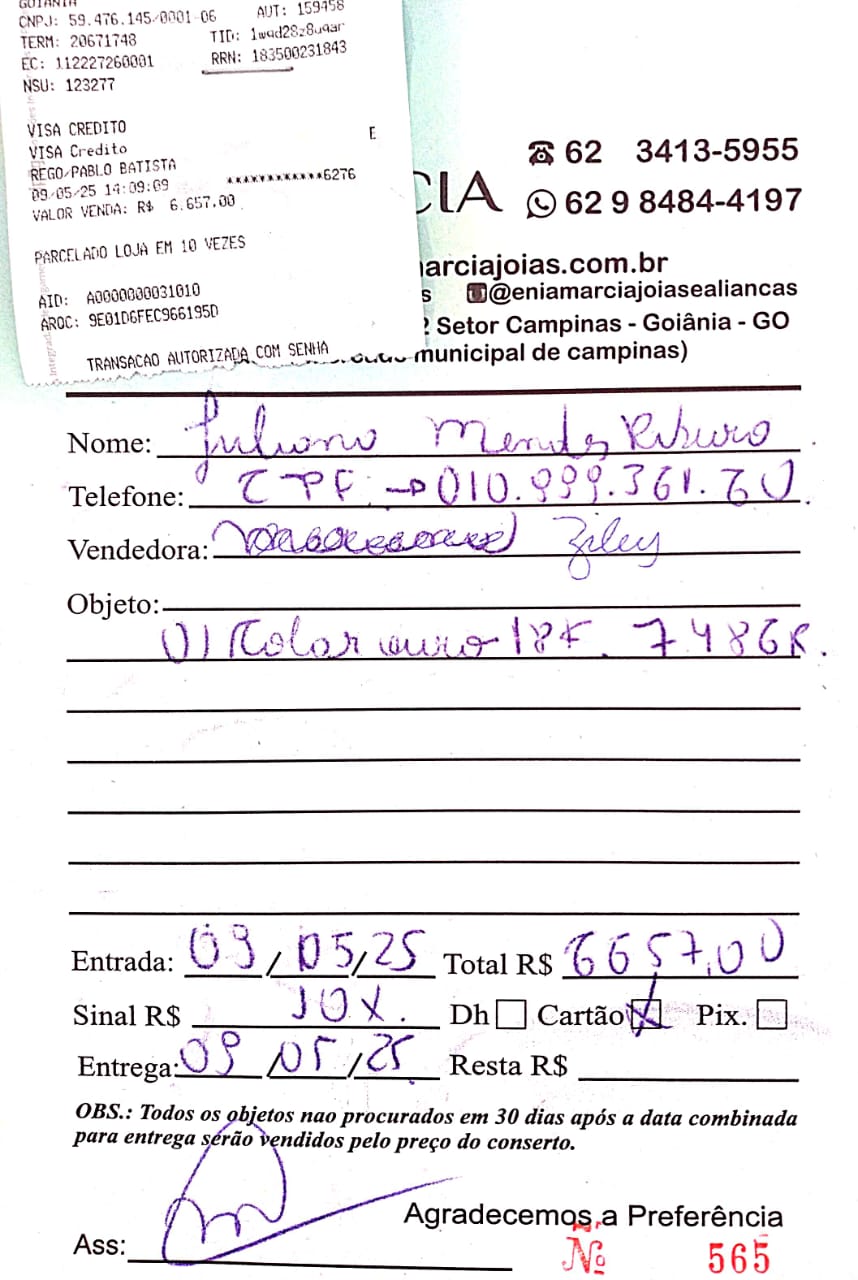 GOIANIA
CNPJ: 59.476.145/0001-06 AUT: 159458
TERM: 20671748 TID:
EC: 112227260001 RRN: 183500231843
NSU: 123277
VISA CREDITO
E
VISA Credito
REGO/PABLO BATISTA
************6276
09/05/25 14:09:09
VALOR VENDA: R$ 6.657,00
PARCELADO LOJA EM 10 VEZES
AID: A0000000031010
ARQC: 9E01D6FEC966195D
TRANSACAO AUTORIZADA COM SENHA
62 3413-5955
CIA 62 9 8484-4197
arciajoias.com.br
s @eniamarciajoiasealiancas
2 Setor Campinas - Goiânia - GO
municipal de campinas)
Nome: Juliano Mendes Ribeiro
Telefone: CPF → 010.999.361.70
Vendedora:
Objeto:
01 Colar ouro 18K. 7486R.
Entrada: 09/05/25 Total R$ 6657,00
Sinal R$ 10X. Dh Cartão X Pix.
Entrega: 09/05/25 Resta R$
OBS.: Todos os objetos nao procurados em 30 dias após a data combinada
para entrega serão vendidos pelo preço do conserto.
Agradecemos a Preferência
Ass:
Nº 565